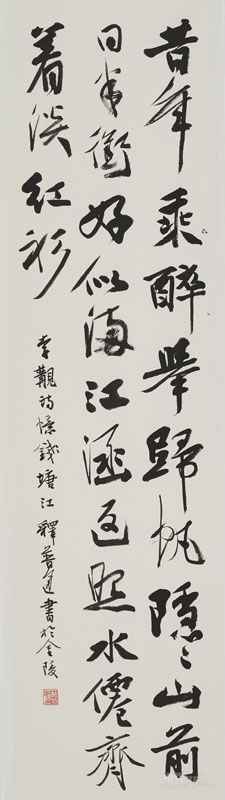 昔年乘醉舉歸帆隱々山前
日半銜好似滿江涵返照水僊齊
着淡紅衫
李覯詩憶錢塘江釋普道書於金陵